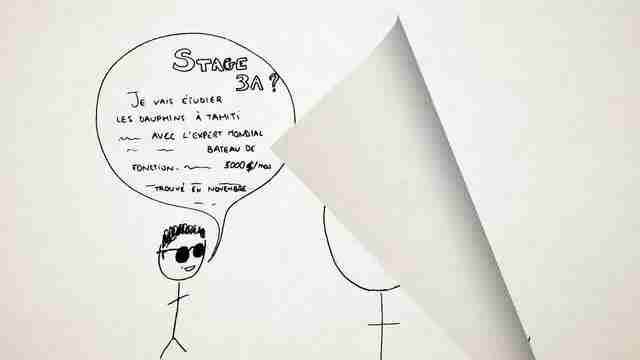 STAGE
3A ?
JE VAIS ÉTUDIER
LES DAUPHINS À TAHITI
AVEC L'EXPERT MONDIAL
BATEAU DE
FONCTION. 3000 $/MOIS
TROUVÉ EN NOVEMBRE